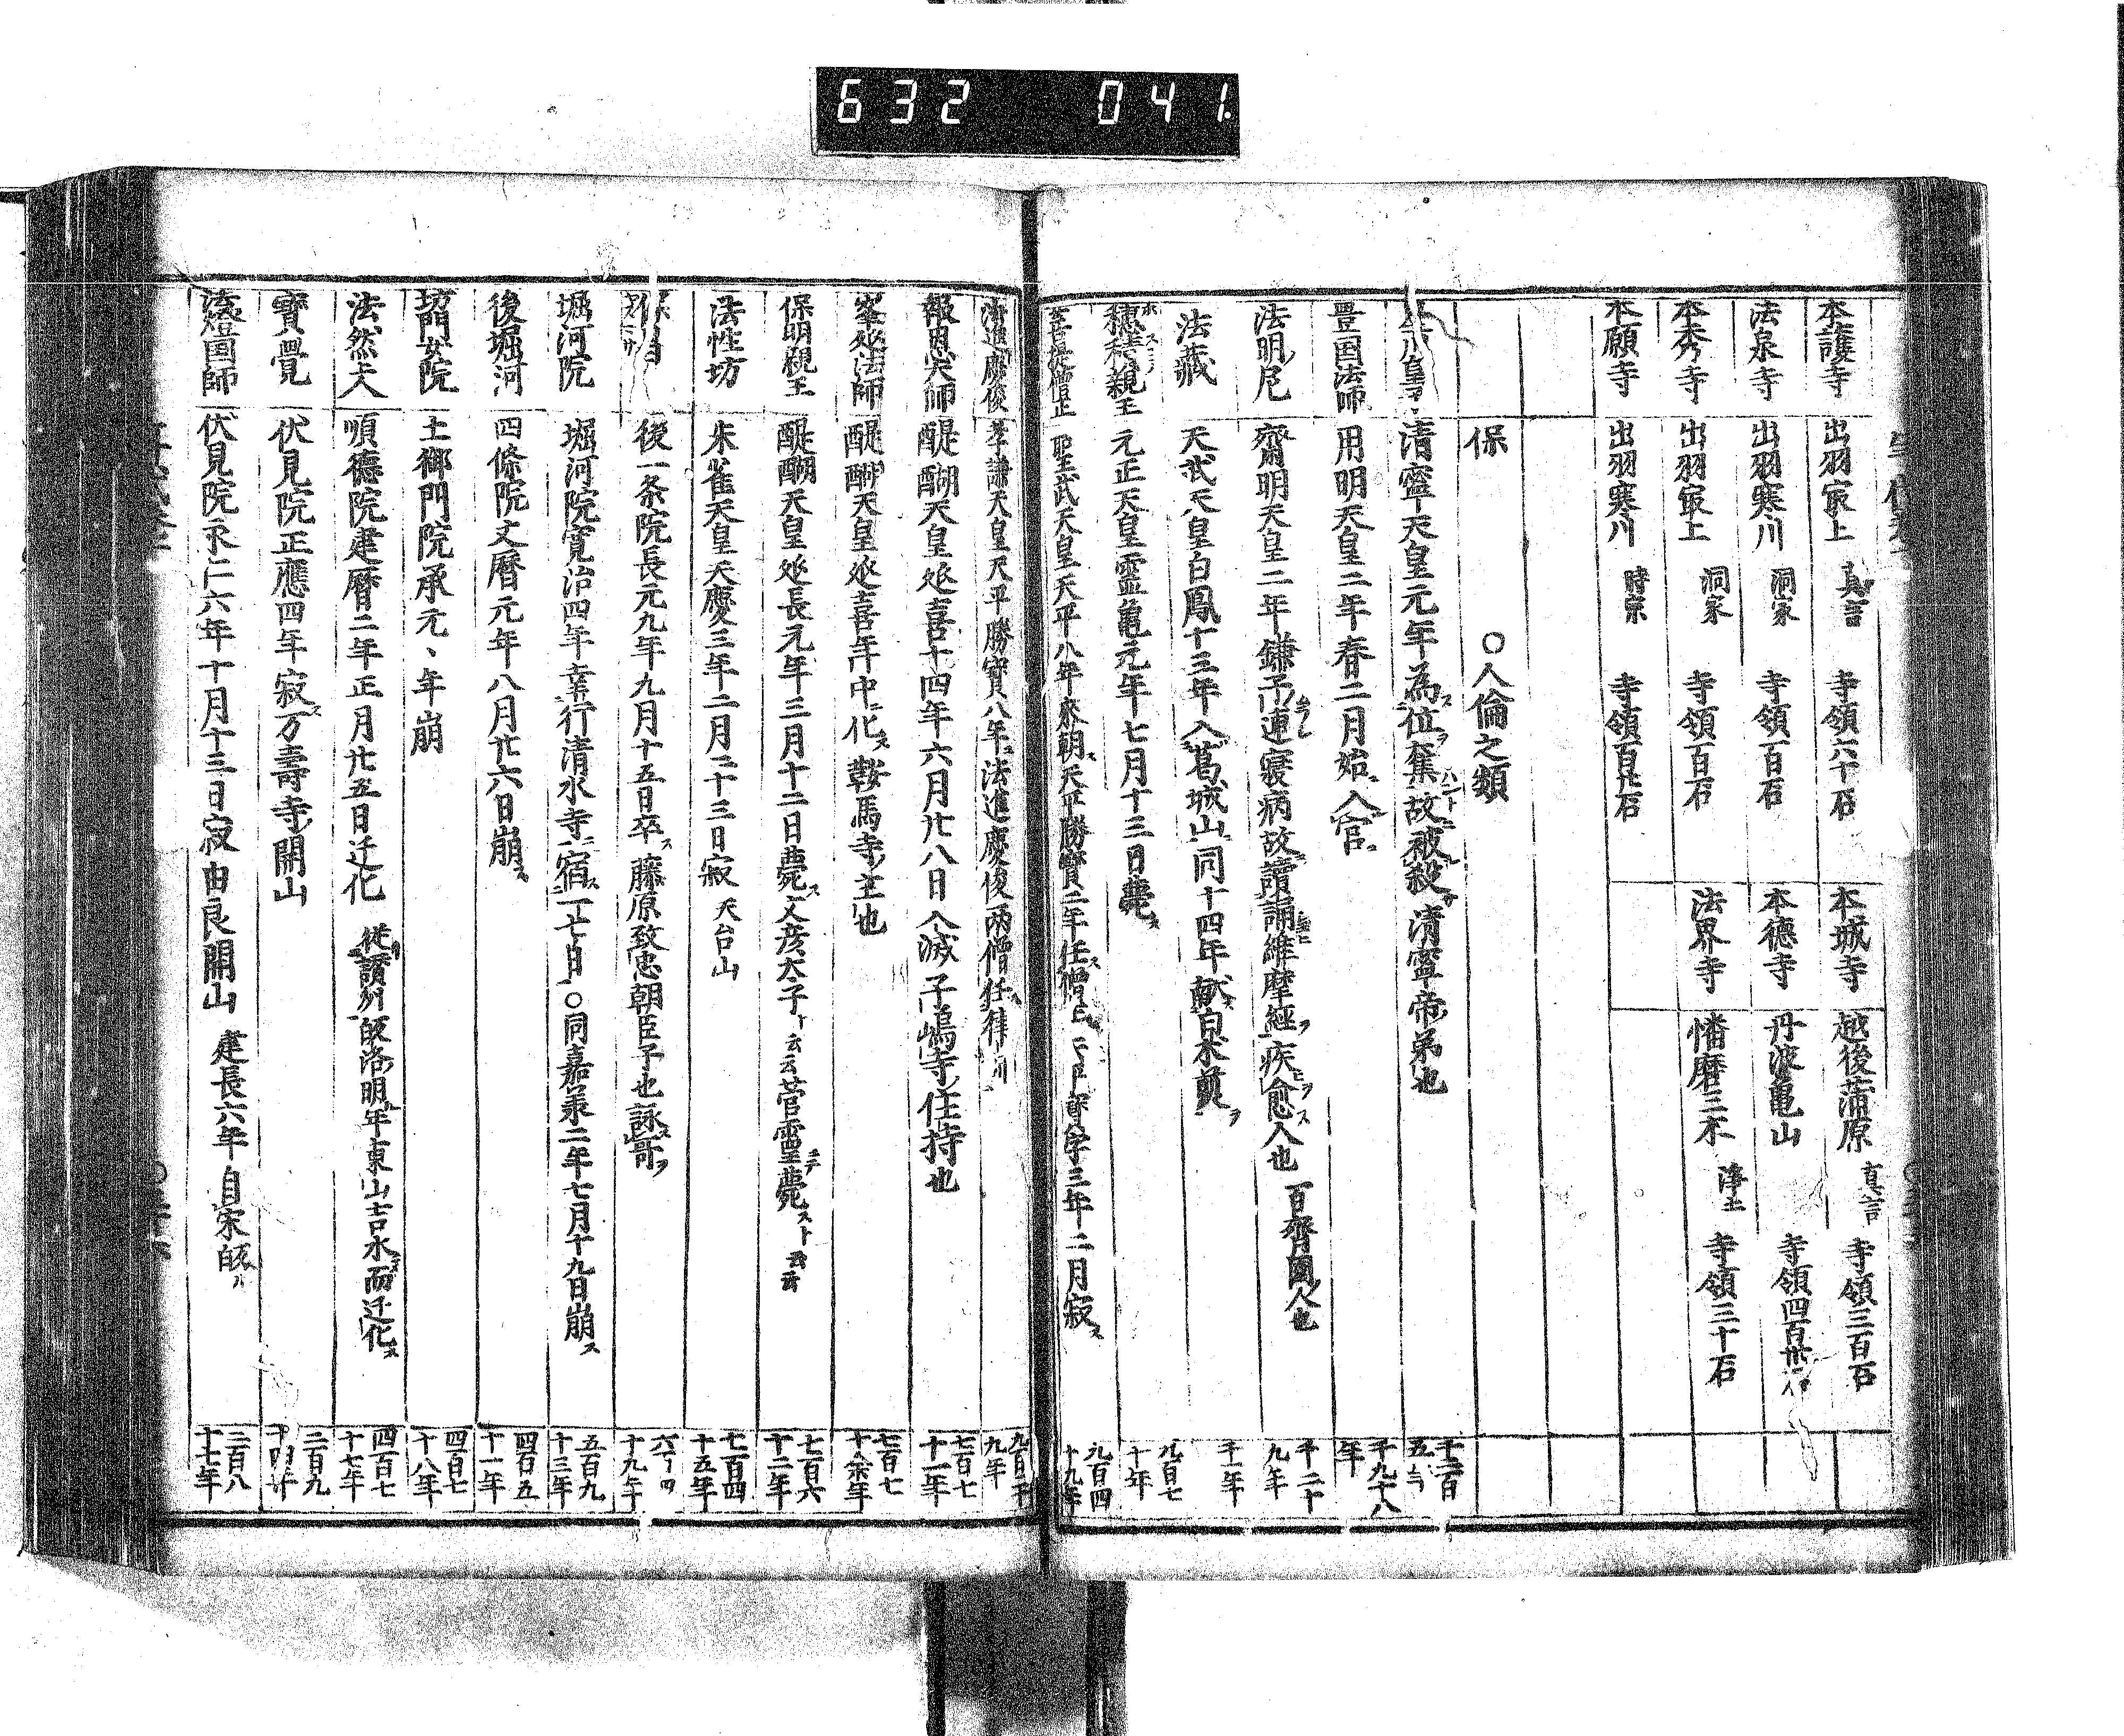 632 041.
本護寺 出羽寂上 真言 寺領六十石 本城寺 越後蒲原 真言 寺領三百石
法泉寺 出羽寒川 洞家 寺領百石 本徳寺 丹波亀山 寺領四百
本秀寺 出羽寂上 洞家 寺領百石 法界寺 幡磨三木 浄土 寺領三十石
本願寺 出羽寒川 時宗 寺領百 石
保 〇人倫之類
清寧天皇元年為位奪故被殺 清寧帝弟也
豊国法師 用明天皇二年春二月始入官 千九十八年
法明尼 齊明天皇二年鎌子連寝病故讀誦維摩經疾愈人也 百齊國人也 千二十九年
法藏 天武天皇白鳳十三年入葛城山同十四年献白木煎 千一年
穂積親王 元正天皇霊亀元年七月十三日薨 九百七十年
菩提僧正 聖武天皇天平八年來朝天平勝寶二年任僧正 字三年二月寂 九百四十九年
法進慶俊 孝謙天皇天平勝寶八年法進慶俊両僧任律 九百二十九年
報恩大師 醍醐天皇延喜十四年六月廿八日入滅 子嶋寺住持也 七百七十一年
峯延法師 醍醐天皇延喜年中化 鞍馬寺主也 七百七十余年
保明親王 醍醐天皇延長元年三月十二日薨文彦太子ト云云菅霊薨スト云云 七百六十二年
法性坊 朱雀天皇天慶三年二月二十三日寂 天台山 七百四十五年
後一条院長元九年九月十五日卒 藤原致忠朝臣子也詠哥
堀河院 堀河院寛治四年幸行清水寺宿一七日〇同嘉承二年七月十九日崩 五百九十三年
後堀河 四條院文暦元年八月廿六日崩 四百五十一年
坊門女院 土御門院承元、年崩 四百七十八年
法然上人 順徳院建暦二年正月廿五日迁化 従讃州皈洛明年東山吉水而迁化 四百七十七年
寶覺 伏見院正應四年寂万壽寺開山 三百九十四年
法燈国師 伏見院永仁六年十月十三日寂由良開山 建長六年自宋皈 三百八十七年